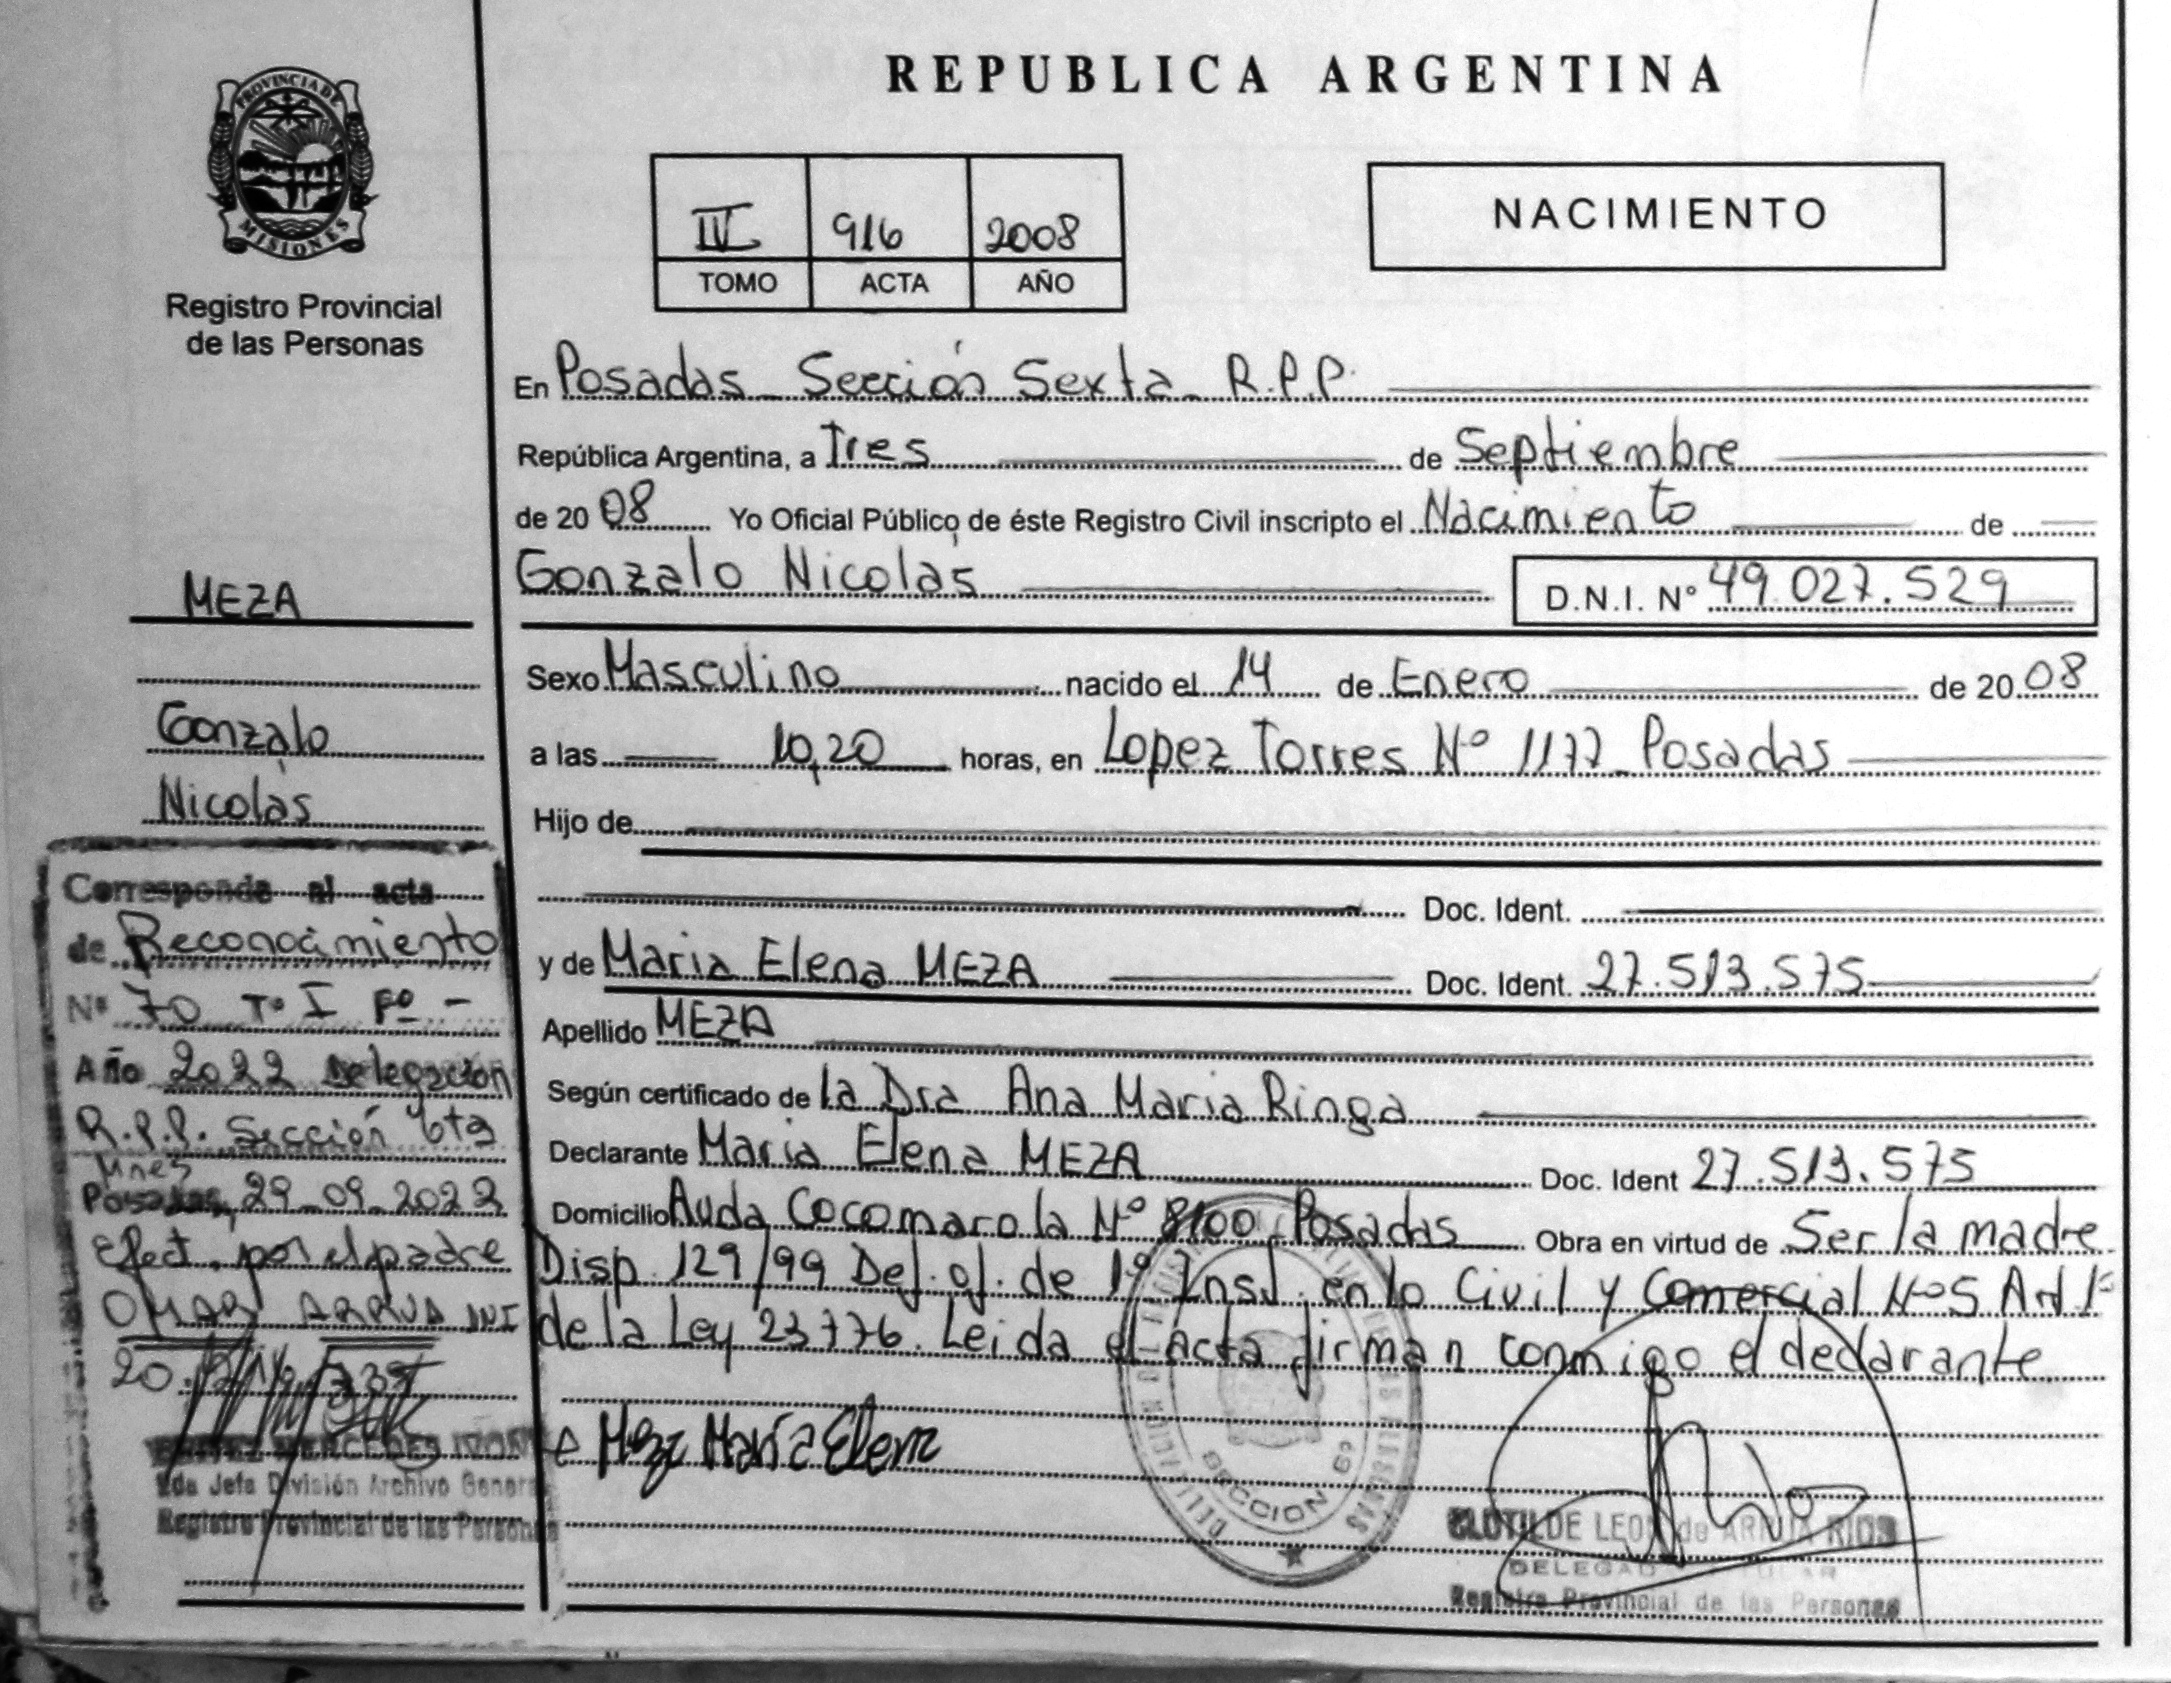 REPUBLICA ARGENTINA
PROVINCIA DE
MISIONES
Registro Provincial
de las Personas
916 2008
TOMO ACTA AÑO
NACIMIENTO
En Posadas - Sección Sexta - R.P.P.
República Argentina, a Tres de Septiembre
de 2008 Yo Oficial Público de éste Registro Civil inscripto el Nacimiento de
Gonzalo Nicolás D.N.I. Nº 49.027.529
Sexo Masculino nacido el 14 de Enero de 2008
a las 10,20 horas, en Lopez Torres Nº 1177 - Posadas
Hijo de
Doc. Ident.
y de Maria Elena MEZA Doc. Ident. 27.513.575
Apellido MEZA
Según certificado de la Dra Ana Maria Ringa
Declarante Maria Elena MEZA Doc. Ident 27.513.575
Domicilio Avda Cocomarola Nº 8100 - Posadas Obra en virtud de Ser la madre
Disp. 129/99 Def. of. de 1º Inst. en lo Civil y Comercial Nº5 Art 1º
de la Ley 23776. Leida el acta firman conmigo el declarante
Meza María Elena
SECCION 6º
CLOTILDE LEON de ARRUA RIOS
Registro Provincial de las Personas
MEZA
Gonzalo
Nicolás
Corresponde al acta
de Reconocimiento
Nº 70 Tº I Fº -
Año 2022 Delegación
R.P.P. Sección 6ta
Mnes
Posadas, 29-09-2022
Efect. por el padre
OMAR ARRUA DNI
20.
2da Jefa División Archivo General
Registro Provincial de las Personas